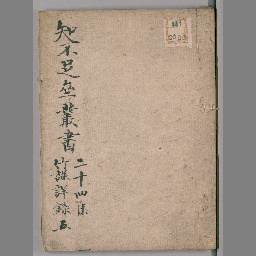 知不足齋叢書
二十四集
竹譜詳録 五